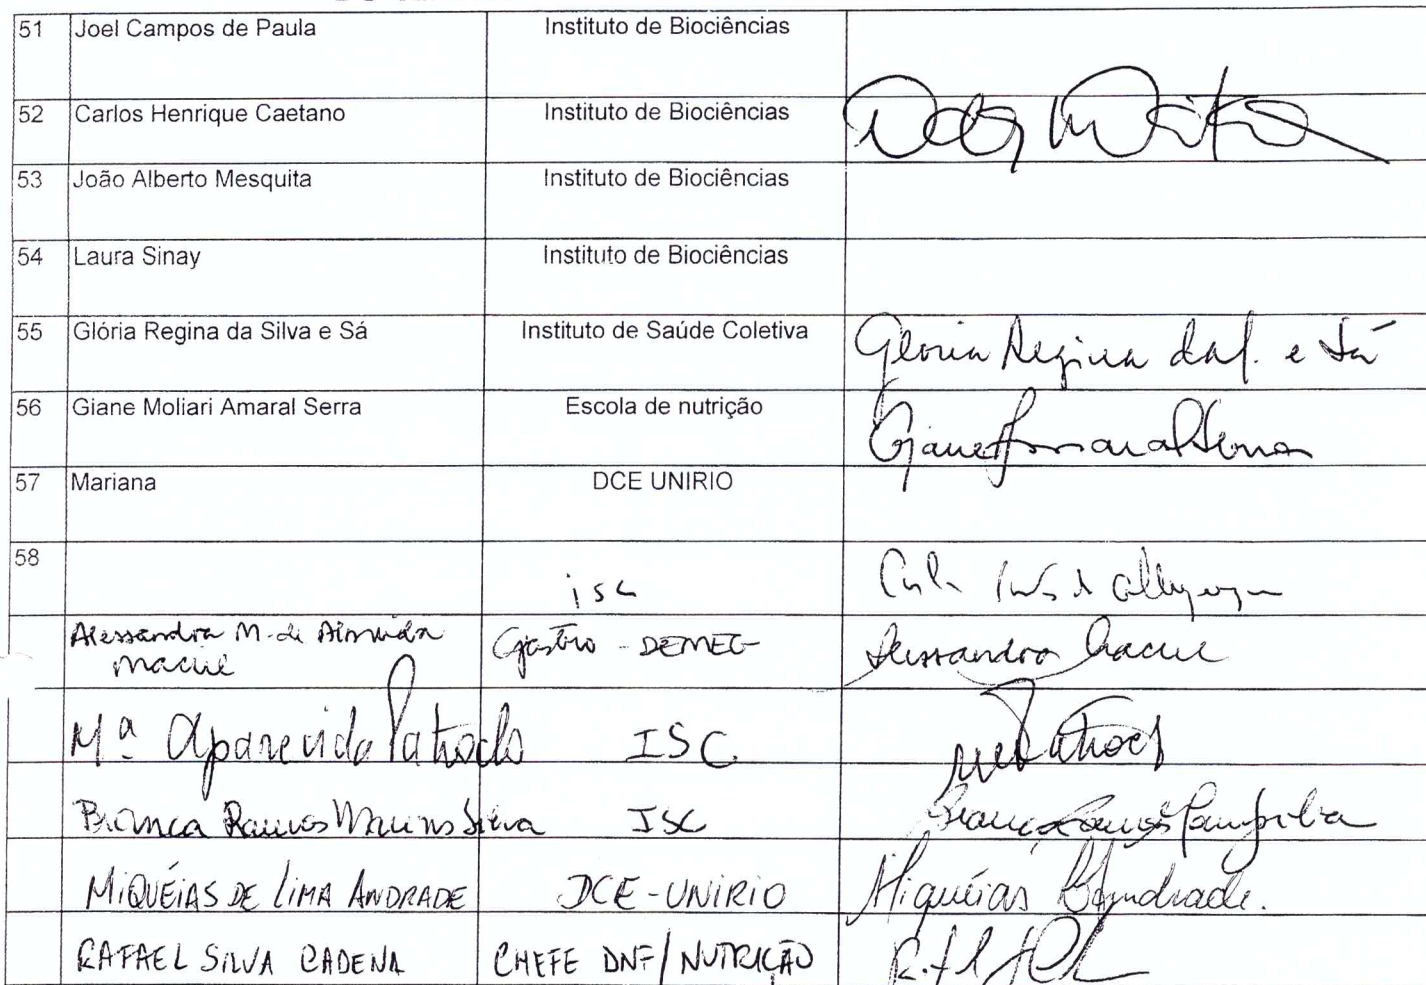 51 Joel Campos de Paula Instituto de Biociências
52 Carlos Henrique Caetano Instituto de Biociências
53 João Alberto Mesquita Instituto de Biociências
54 Laura Sinay Instituto de Biociências
55 Glória Regina da Silva e Sá Instituto de Saúde Coletiva Gloria Regina da S. e Sá
56 Giane Moliari Amaral Serra Escola de nutrição Giane Amaral Serra
57 Mariana DCE UNIRIO
58 isc
Alessandra M. de Almeida Gastro - DEMEG Alessandra Maciel
Maciel
Mª Aparecida Patroclo ISC
Bianca Ramos Marins Silva ISC Bianca Ramos
MIQUÉIAS DE LIMA ANDRADE DCE-UNIRIO Miquéias Andrade.
RAFAEL SILVA CADENA CHEFE DNF/NUTRIÇÃO